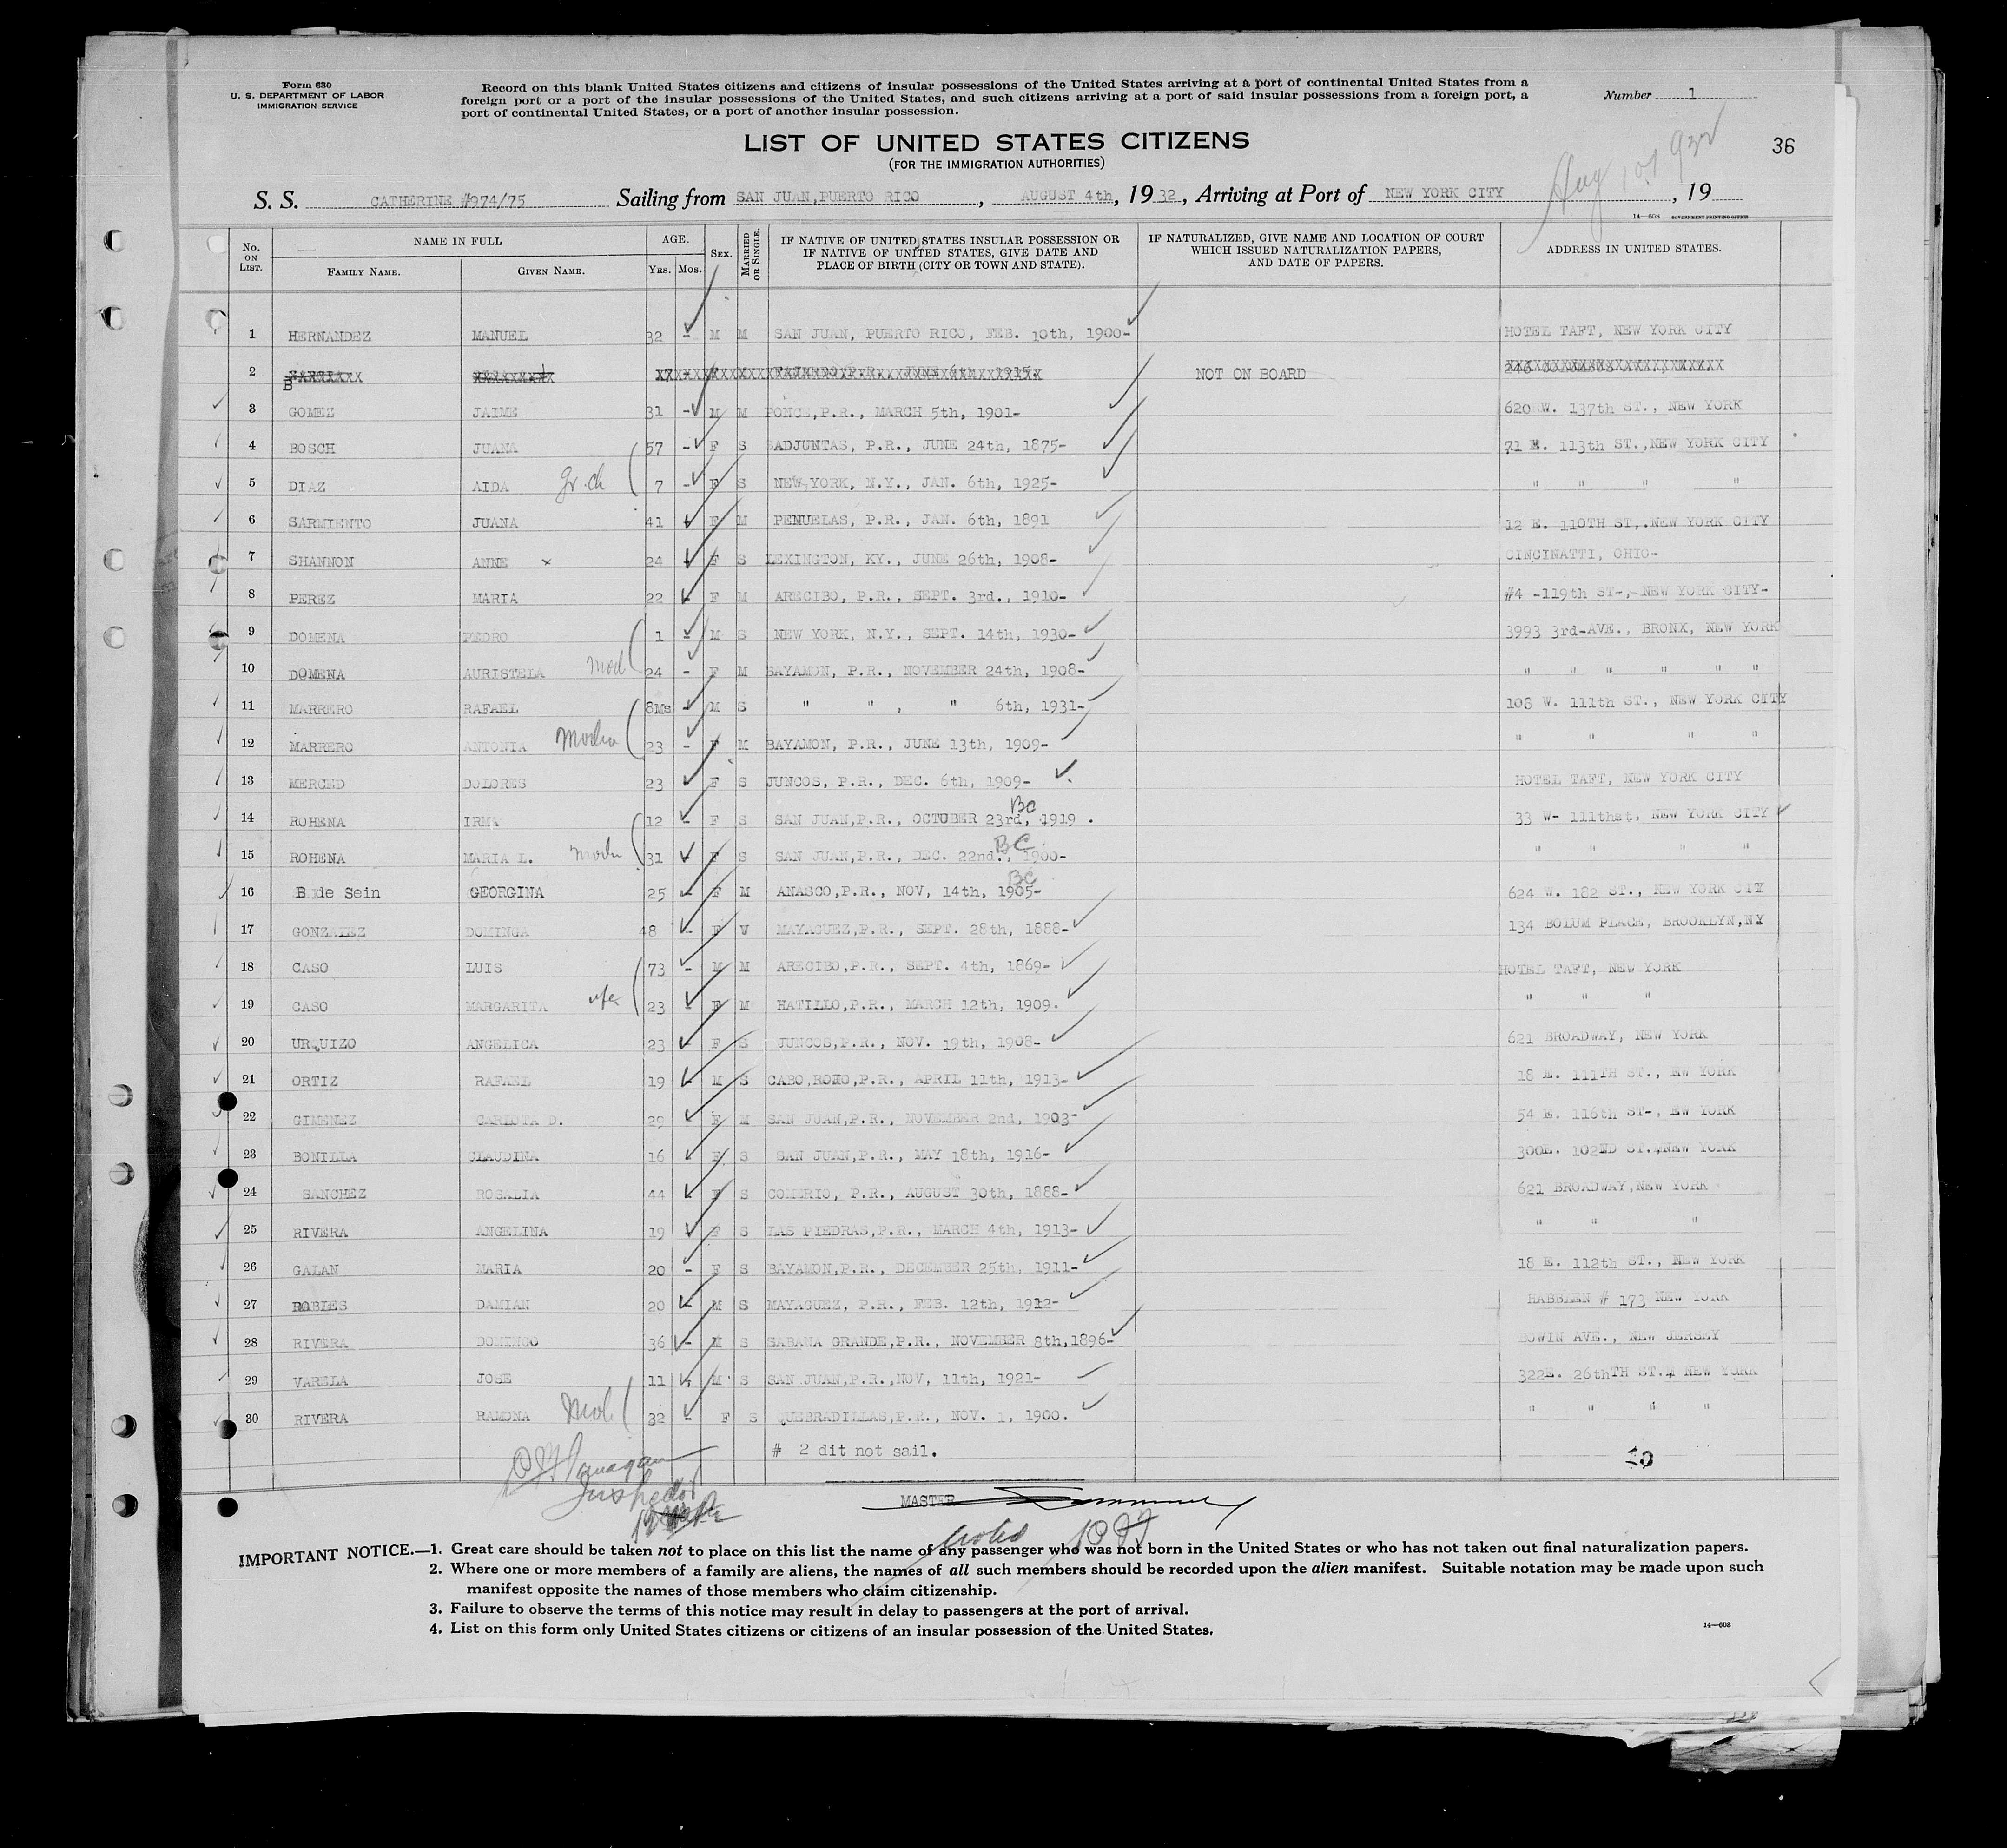 Form 630
U. S. DEPARTMENT OF LABOR
IMMIGRATION SERVICE
Record on this blank United States citizens and citizens of insular possessions of the United States arriving at a port of continental United States from a
foreign port or a port of the insular possessions of the United States, and such citizens arriving at a port of said insular possessions from a foreign port, a
port of continental United States, or a port of another insular possession.
Number 1
36
LIST OF UNITED STATES CITIZENS
(FOR THE IMMIGRATION AUTHORITIES)
S. S. CATHERINE #974/75 Sailing from SAN JUAN,PUERTO RICO, AUGUST 4th, 1932, Arriving at Port of NEW YORK CITY, 19
14—608 GOVERNMENT PRINTING OFFICE
No. ON LIST. NAME IN FULL FAMILY NAME. GIVEN NAME. AGE. YRS. MOS. SEX. MARRIED OR SINGLE. IF NATIVE OF UNITED STATES INSULAR POSSESSION OR IF NATIVE OF UNITED STATES, GIVE DATE AND PLACE OF BIRTH (CITY OR TOWN AND STATE). IF NATURALIZED, GIVE NAME AND LOCATION OF COURT WHICH ISSUED NATURALIZATION PAPERS, AND DATE OF PAPERS. ADDRESS IN UNITED STATES.
1 HERNANDEZ MANUEL 32 - M M SAN JUAN, PUERTO RICO, FEB. 10th, 1900- HOTEL TAFT, NEW YORK CITY
2 NOT ON BOARD
3 GOMEZ JAIME 31 - M M PONCE,P.R., MARCH 5th, 1901- 620 W. 137th ST., NEW YORK
4 BOSCH JUANA 57 - F S ADJUNTAS, P.R., JUNE 24th, 1875- 71 E. 113th ST.,NEW YORK CITY
5 DIAZ AIDA gr.ch 7 - F S NEW YORK, N.Y., JAN. 6th, 1925- " " " "
6 SARMIENTO JUANA 41 - F M PENUELAS, P.R., JAN. 6th, 1891 12 E. 110TH ST,.NEW YORK CITY
7 SHANNON ANNE x 24 - F S LEXINGTON, KY., JUNE 26th, 1908- CINCINATTI, OHIO-
8 PEREZ MARIA 22 - F M ARECIBO, P.R., SEPT. 3rd., 1910- #4 -119th ST-,-NEW YORK CITY-
9 DOMENA PEDRO 1 - M S NEW YORK, N.Y., SEPT. 14th, 1930- 3993 3rd-AVE., BRONX, NEW YORK
10 DOMENA AURISTELA 24 - F M BAYAMON, P.R., NOVEMBER 24th, 1908- " " " " " "
11 MARRERO RAFAEL 8Ms - M S " " , " 6th, 1931- 108 W. 111th ST., NEW YORK CITY
12 MARRERO ANTONIA 23 - F M BAYAMON, P.R., JUNE 13th, 1909- " " " "
13 MERCED DOLORES 23 - F S JUNCOS, P.R., DEC. 6th, 1909- HOTEL TAFT, NEW YORK CITY
14 ROHENA IRMA 12 - F S SAN JUAN,P.R., OCTOBER 23rd, 1919 . BC 33 W- 111thst, NEW YORK CITY
15 ROHENA MARIA L. 31 - F S SAN JUAN,P.R., DEC. 22nd., 1900- BC " " " "
16 B de Sein GEORGINA 25 - F M ANASCO,P.R., NOV, 14th, 1905- BC 624 W. 182 ST., NEW YORK CITY
17 GONZALEZ DOMINGA 48 - F W MAYAGUEZ,P.R., SEPT. 28th, 1888- 134 BOLUM PLACE, BROOKLYN,NY
18 CASO LUIS 73 - M M ARECIBO,P.R., SEPT. 4th, 1869- HOTEL TAFT, NEW YORK
19 CASO MARGARITA 23 - F M HATILLO,P.R., MARCH 12th, 1909. " " "
20 URQUIZO ANGELICA 23 - F S JUNCOS,P.R., NOV. 19th, 1908- 621 BROADWAY, NEW YORK
21 ORTIZ RAFAEL 19 - M S CABO,ROJO,P.R., APRIL 11th, 1913- 18 E. 111TH ST., EW YORK
22 GIMENEZ CARLOTA D. 29 - F M SAN JUAN,P.R., NOVEMBER 2nd, 1903- 54 E. 116th ST-, EW YORK
23 BONILLA CLAUDINA 16 - F S SAN JUAN,P.R., MAY 18th, 1916- 300E. 102ND ST.,NEW YORK
24 SANCHEZ ROSALIA 44 - F S COMERIO, P.R., AUGUST 30th, 1888- 621 BROADWAY,NEW YORK
25 RIVERA ANGELINA 19 - F S LAS PIEDRAS,P.R., MARCH 4th, 1913- " " "
26 GALAN MARIA 20 - F S BAYAMON,P.R., DECEMBER 25th, 1911- 18 E. 112th ST., NEW YORK
27 ROBLES DAMIAN 20 - M S MAYAGUEZ, P.R., FEB. 12th, 1912- # 173 NEW YORK
28 RIVERA DOMINGO 36 - M S SABANA GRANDE,P.R., NOVEMBER 8th,1896- BOWIN AVE., NEW JERSEY
29 VARELA JOSE 11 M S SAN JUAN,P.R.,NOV, 11th, 1921- 322E. 26thTH ST., NEW YORK
30 RIVERA RAMONA 32 - F S QUEBRADILLAS,P.R., NOV. 1, 1900. " " " "
# 2 dit not sail.
MASTER
IMPORTANT NOTICE.—1. Great care should be taken not to place on this list the name of any passenger who was not born in the United States or who has not taken out final naturalization papers.
2. Where one or more members of a family are aliens, the names of all such members should be recorded upon the alien manifest. Suitable notation may be made upon such
manifest opposite the names of those members who claim citizenship.
3. Failure to observe the terms of this notice may result in delay to passengers at the port of arrival.
4. List on this form only United States citizens or citizens of an insular possession of the United States.
14—608